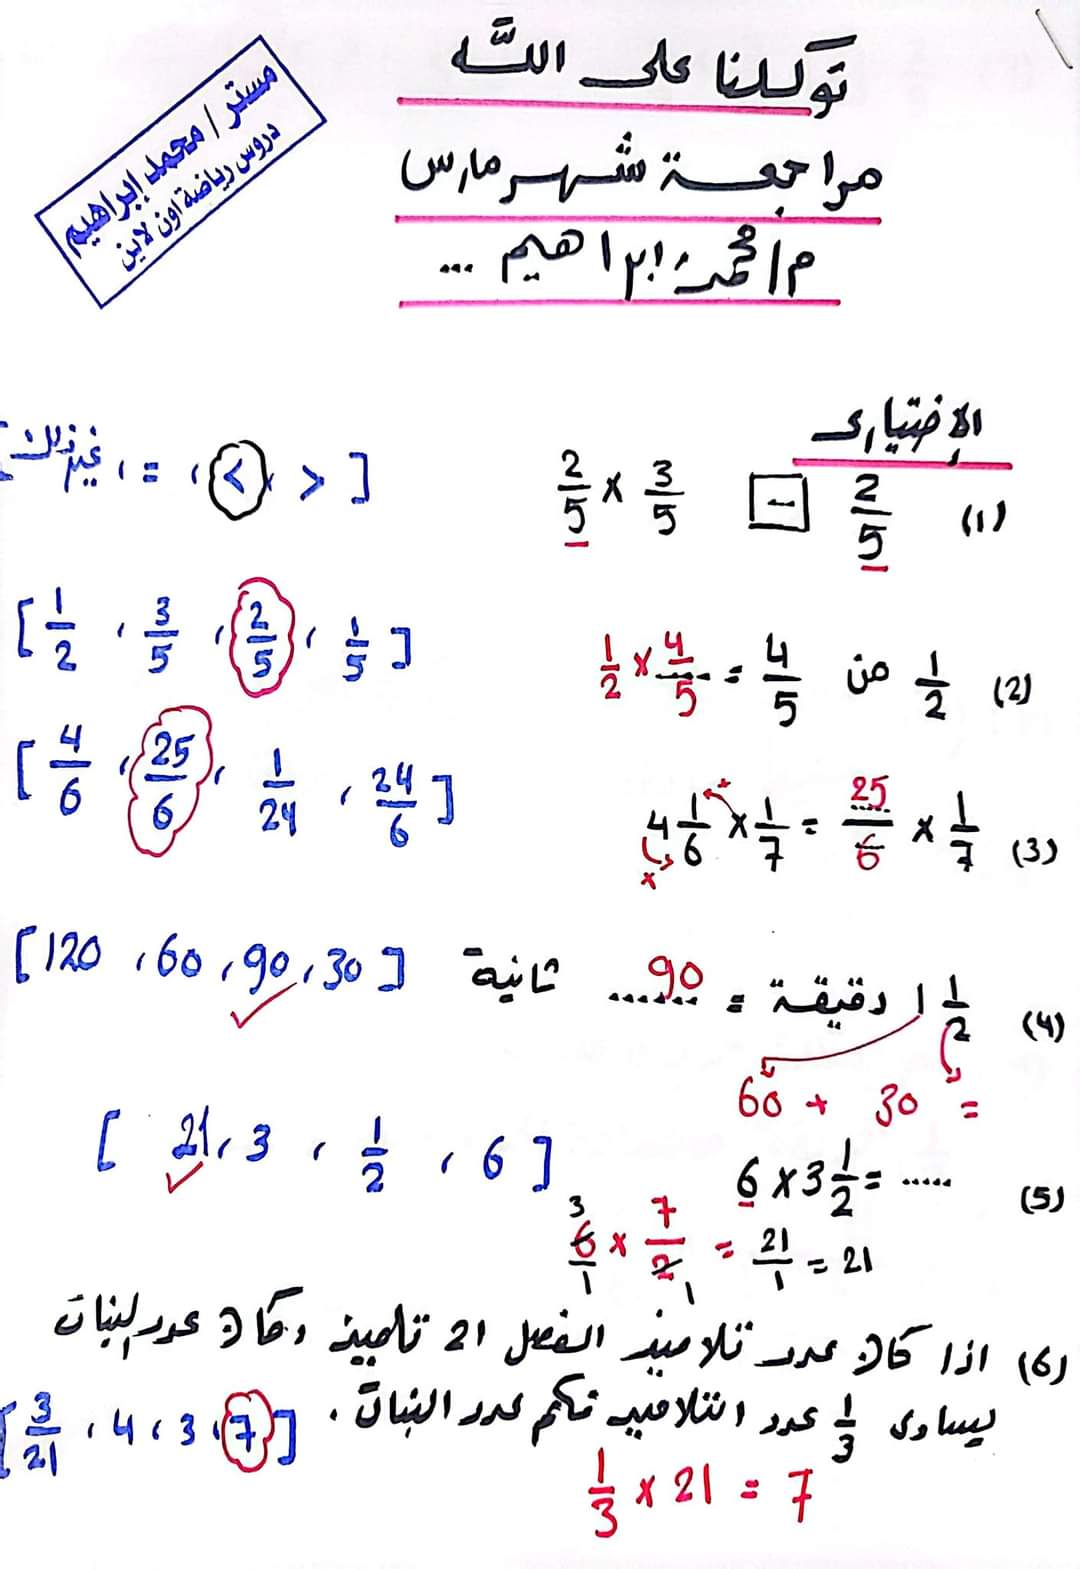 توكلنا على الله
مراجعة شهر مارس
م/ محمد إبراهيم ...
مستر / محمد إبراهيم
دروس رياضة اون لاين
الإختيارى
(1) 2/5 [--] 3/5 × 2/5 [ < ، > ، = ، غير ذلك ]
(2) 1/2 من 4/5 = 1/2 × 4/5 [ 1/2 ، 3/5 ، 2/5 ، 1/5 ]
(3) 4 1/6 × 1/7 = 25/6 × 1/7 [ 4/6 ، 25/6 ، 1/24 ، 24/6 ]
(4) 1 1/2 دقيقة = 90 ثانية [ 120 ، 60 ، 90 ، 30 ]
60 + 30 =
(5) 6 × 3 1/2 = ..... [ 21 ، 3 ، 1/2 ، 6 ]
6/1 × 7/2 = 21/1 = 21
3 1
(6) اذا كان عدد تلاميذ الفصل 21 تلميذ وكان عدد البنات
يساوى 1/3 عدد التلاميذ فكم عدد البنات . [ 3/21 ، 4 ، 3 ، 7 ]
1/3 × 21 = 7